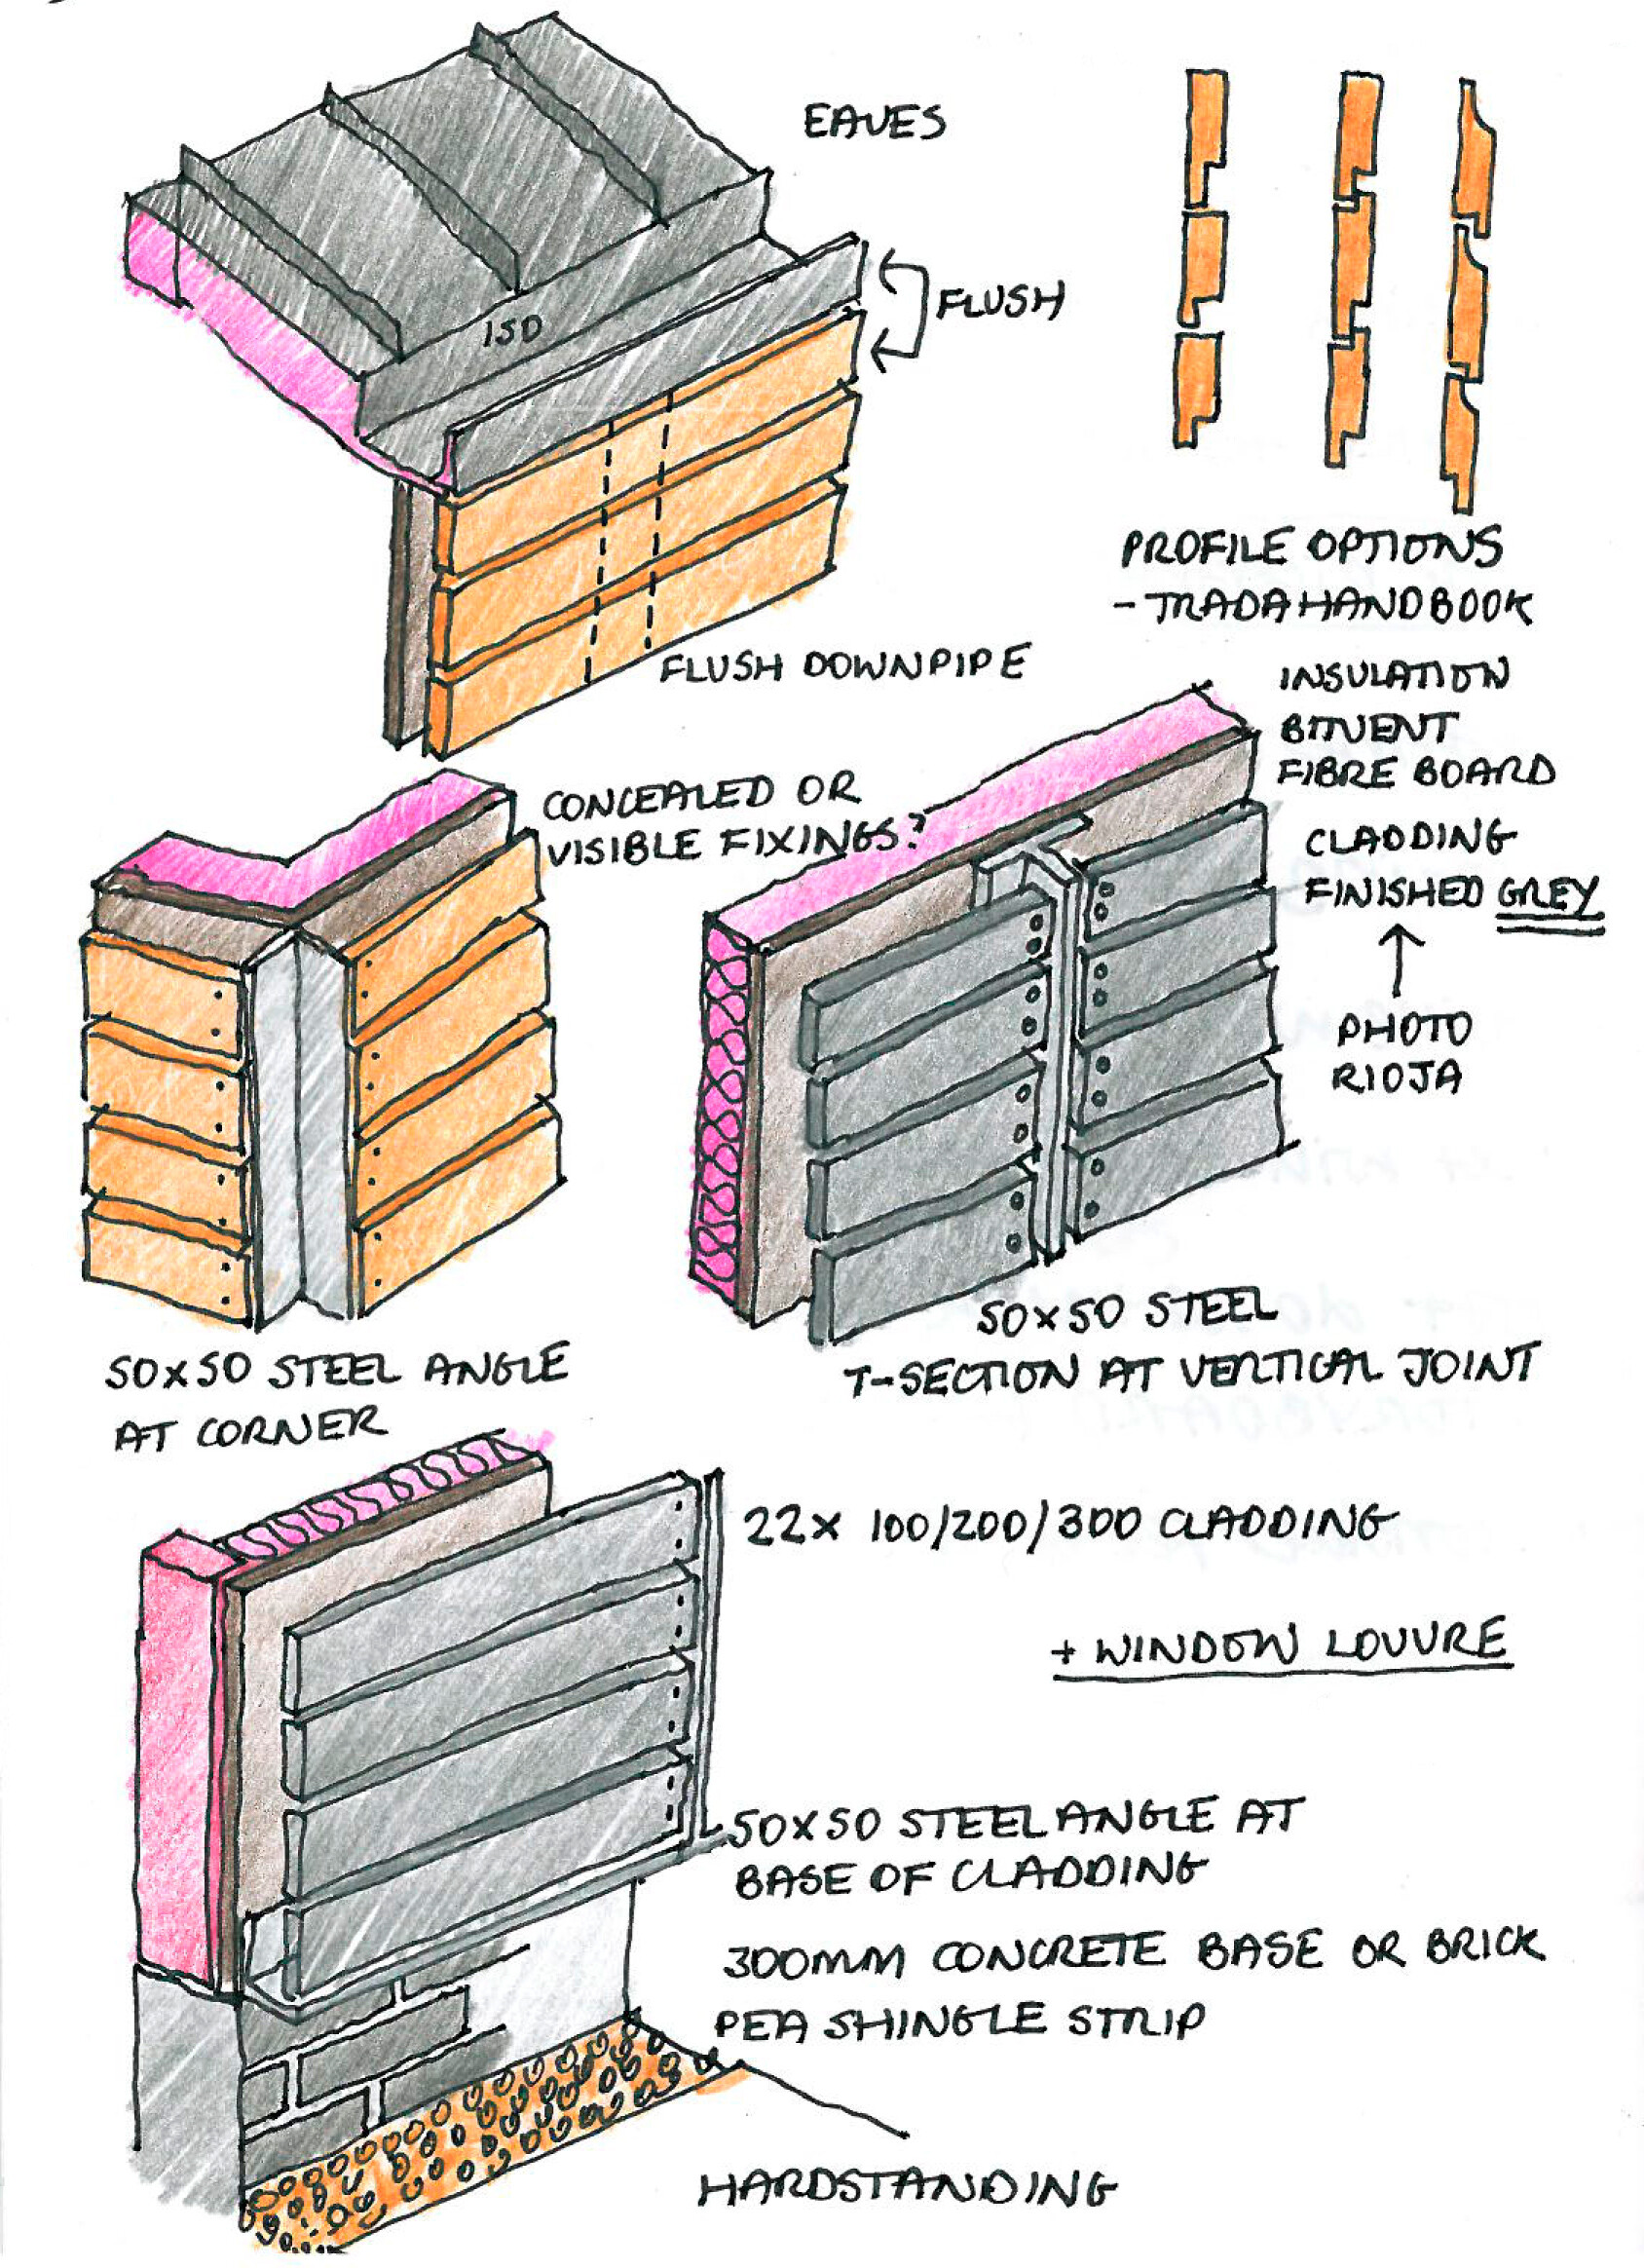 EAVES
150
FLUSH
PROFILE OPTIONS
- TRADA HANDBOOK
FLUSH DOWNPIPE
INSULATION
BITVENT
FIBRE BOARD
CONCEALED OR
VISIBLE FIXINGS?
CLADDING
FINISHED GREY
PHOTO
RIOJA
50x50 STEEL
T-SECTION AT VERTICAL JOINT
50x50 STEEL ANGLE
AT CORNER
22x 100/200/300 CLADDING
+ WINDOW LOUVRE
50x50 STEEL ANGLE AT
BASE OF CLADDING
300mm CONCRETE BASE OR BRICK
PEA SHINGLE STRIP
HARDSTANDING